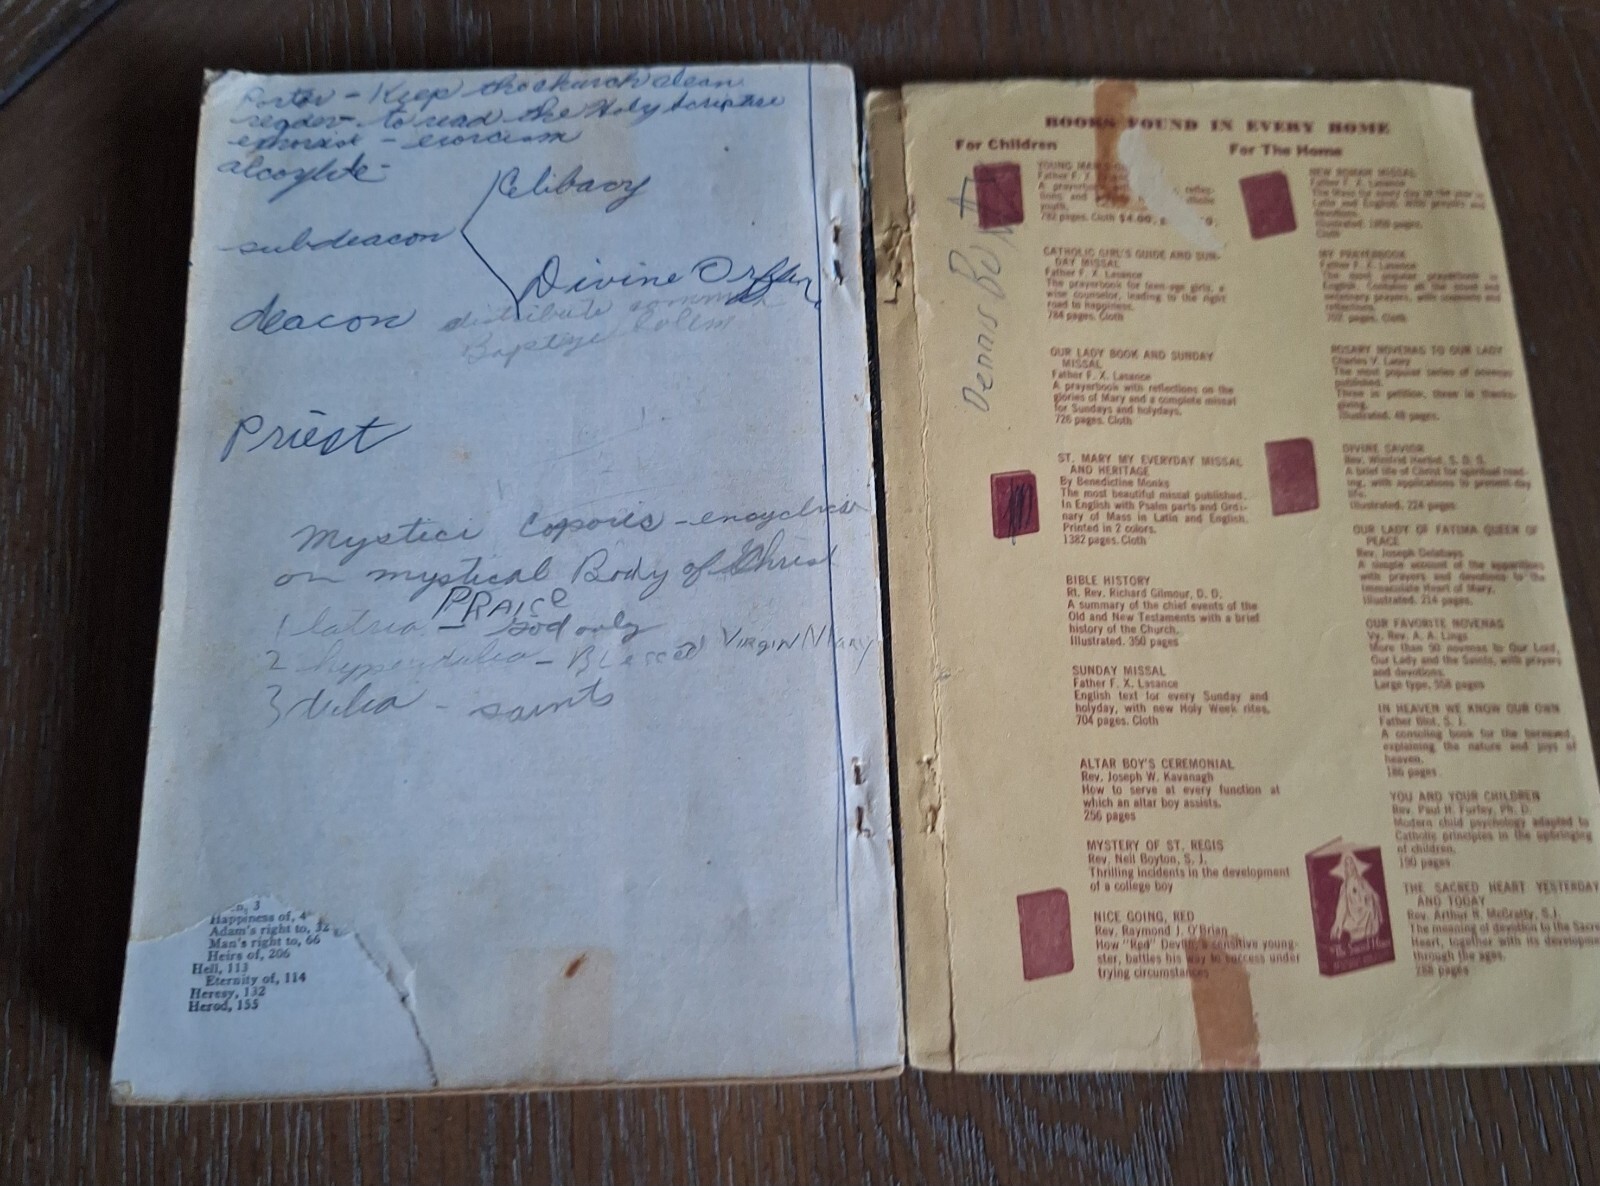 Porter - Keep the church clean
reader - to read the Holy Scriptee
exorcist - exorcism
alcoylite -
Celibacy
subdeacon
Divine
deacon distribute
Baptize
Priest
Mystici Coporis - encyclical
on mystical Body of Christ
PRAISE
1 latria - God only
2 - Blessed VIRGIN MARY
3 dulia - saints
Happiness of, 4
Adam's right to, 32
Man's right to, 66
Heirs of, 206
Hell, 113
Eternity of, 114
Heresy, 132
Herod, 155
Dennis
BOOKS FOUND IN EVERY HOME
For Children
YOUNG
Father F. X.
A
tions and
youth.
782 pages. Cloth $4.00,
CATHOLIC GIRL'S GUIDE AND SUN-
DAY MISSAL
Father F. X. Lasance
The prayerbook for teen-age girls, a
wise counselor, leading to the right
road to happiness.
784 pages. Cloth
OUR LADY BOOK AND SUNDAY
MISSAL
Father F. X. Lasance
A prayerbook with reflections on the
glories of Mary and a complete missal
for Sundays and holydays.
726 pages. Cloth
ST. MARY MY EVERYDAY MISSAL
AND HERITAGE
By Benedictine Monks
The most beautiful missal published.
In English with Psalm parts and Ordi-
nary of Mass in Latin and English.
Printed in 2 colors.
1382 pages. Cloth
BIBLE HISTORY
Rt. Rev. Richard Gilmour, D. D.
A summary of the chief events of the
Old and New Testaments with a brief
history of the Church.
Illustrated. 350 pages
SUNDAY MISSAL
Father F. X. Lasance
English text for every Sunday and
holyday, with new Holy Week rites.
704 pages. Cloth
ALTAR BOY'S CEREMONIAL
Rev. Joseph W. Kavanagh
How to serve at every function at
which an altar boy assists.
256 pages
MYSTERY OF ST. REGIS
Rev. Neil Boyton, S. J.
Thrilling incidents in the development
of a college boy
NICE GOING, RED
Rev. Raymond J. O'Brian
How "Red" Devlin, a sensitive young-
ster, battles his way to success under
trying circumstances
For The Home
NEW ROMAN MISSAL
Father F. X. Lasance
The Mass for every day in the year in
Latin and English. With prayers and
devotions.
Illustrated. pages.
Cloth
MY PRAYERBOOK
Father F. X. Lasance
The most popular prayerbook in
English. Contains all the usual and
necessary prayers, with counsels and
reflections.
702 pages. Cloth
ROSARY NOVENAS TO OUR LADY
Charles V. Lacey
The most popular series of novenas
published.
Three in petition, three in thanks-
giving.
Illustrated. 48 pages.
DIVINE SAVIOR
Rev. Winfrid Herbst, S. D. S.
A brief life of Christ for spiritual read-
ing, with applications to present-day
life.
Illustrated. 224 pages
OUR LADY OF FATIMA QUEEN OF
PEACE
Rev. Joseph
A simple account of the apparitions
with prayers and devotions to the
Immaculate Heart of Mary.
Illustrated. 214 pages.
OUR FAVORITE NOVENAS
Vy. Rev. A. A. Lings
More than 50 novenas to Our Lord,
Our Lady and the Saints, with prayers
and devotions.
Large type, 558 pages
IN HEAVEN WE KNOW OUR OWN
Father Blot, S. J.
A consoling book for the bereaved,
explaining the nature and joys of
heaven.
186 pages
YOU AND YOUR CHILDREN
Rev. Paul H. Furfey, Ph. D.
Modern child psychology adapted to
Catholic principles in the upbringing
of children.
190 pages
THE SACRED HEART YESTERDAY
AND TODAY
Rev. Arthur R. McGratty, S.J.
The meaning of devotion to the Sacre
Heart, together with its developme
through the ages.
288 pages